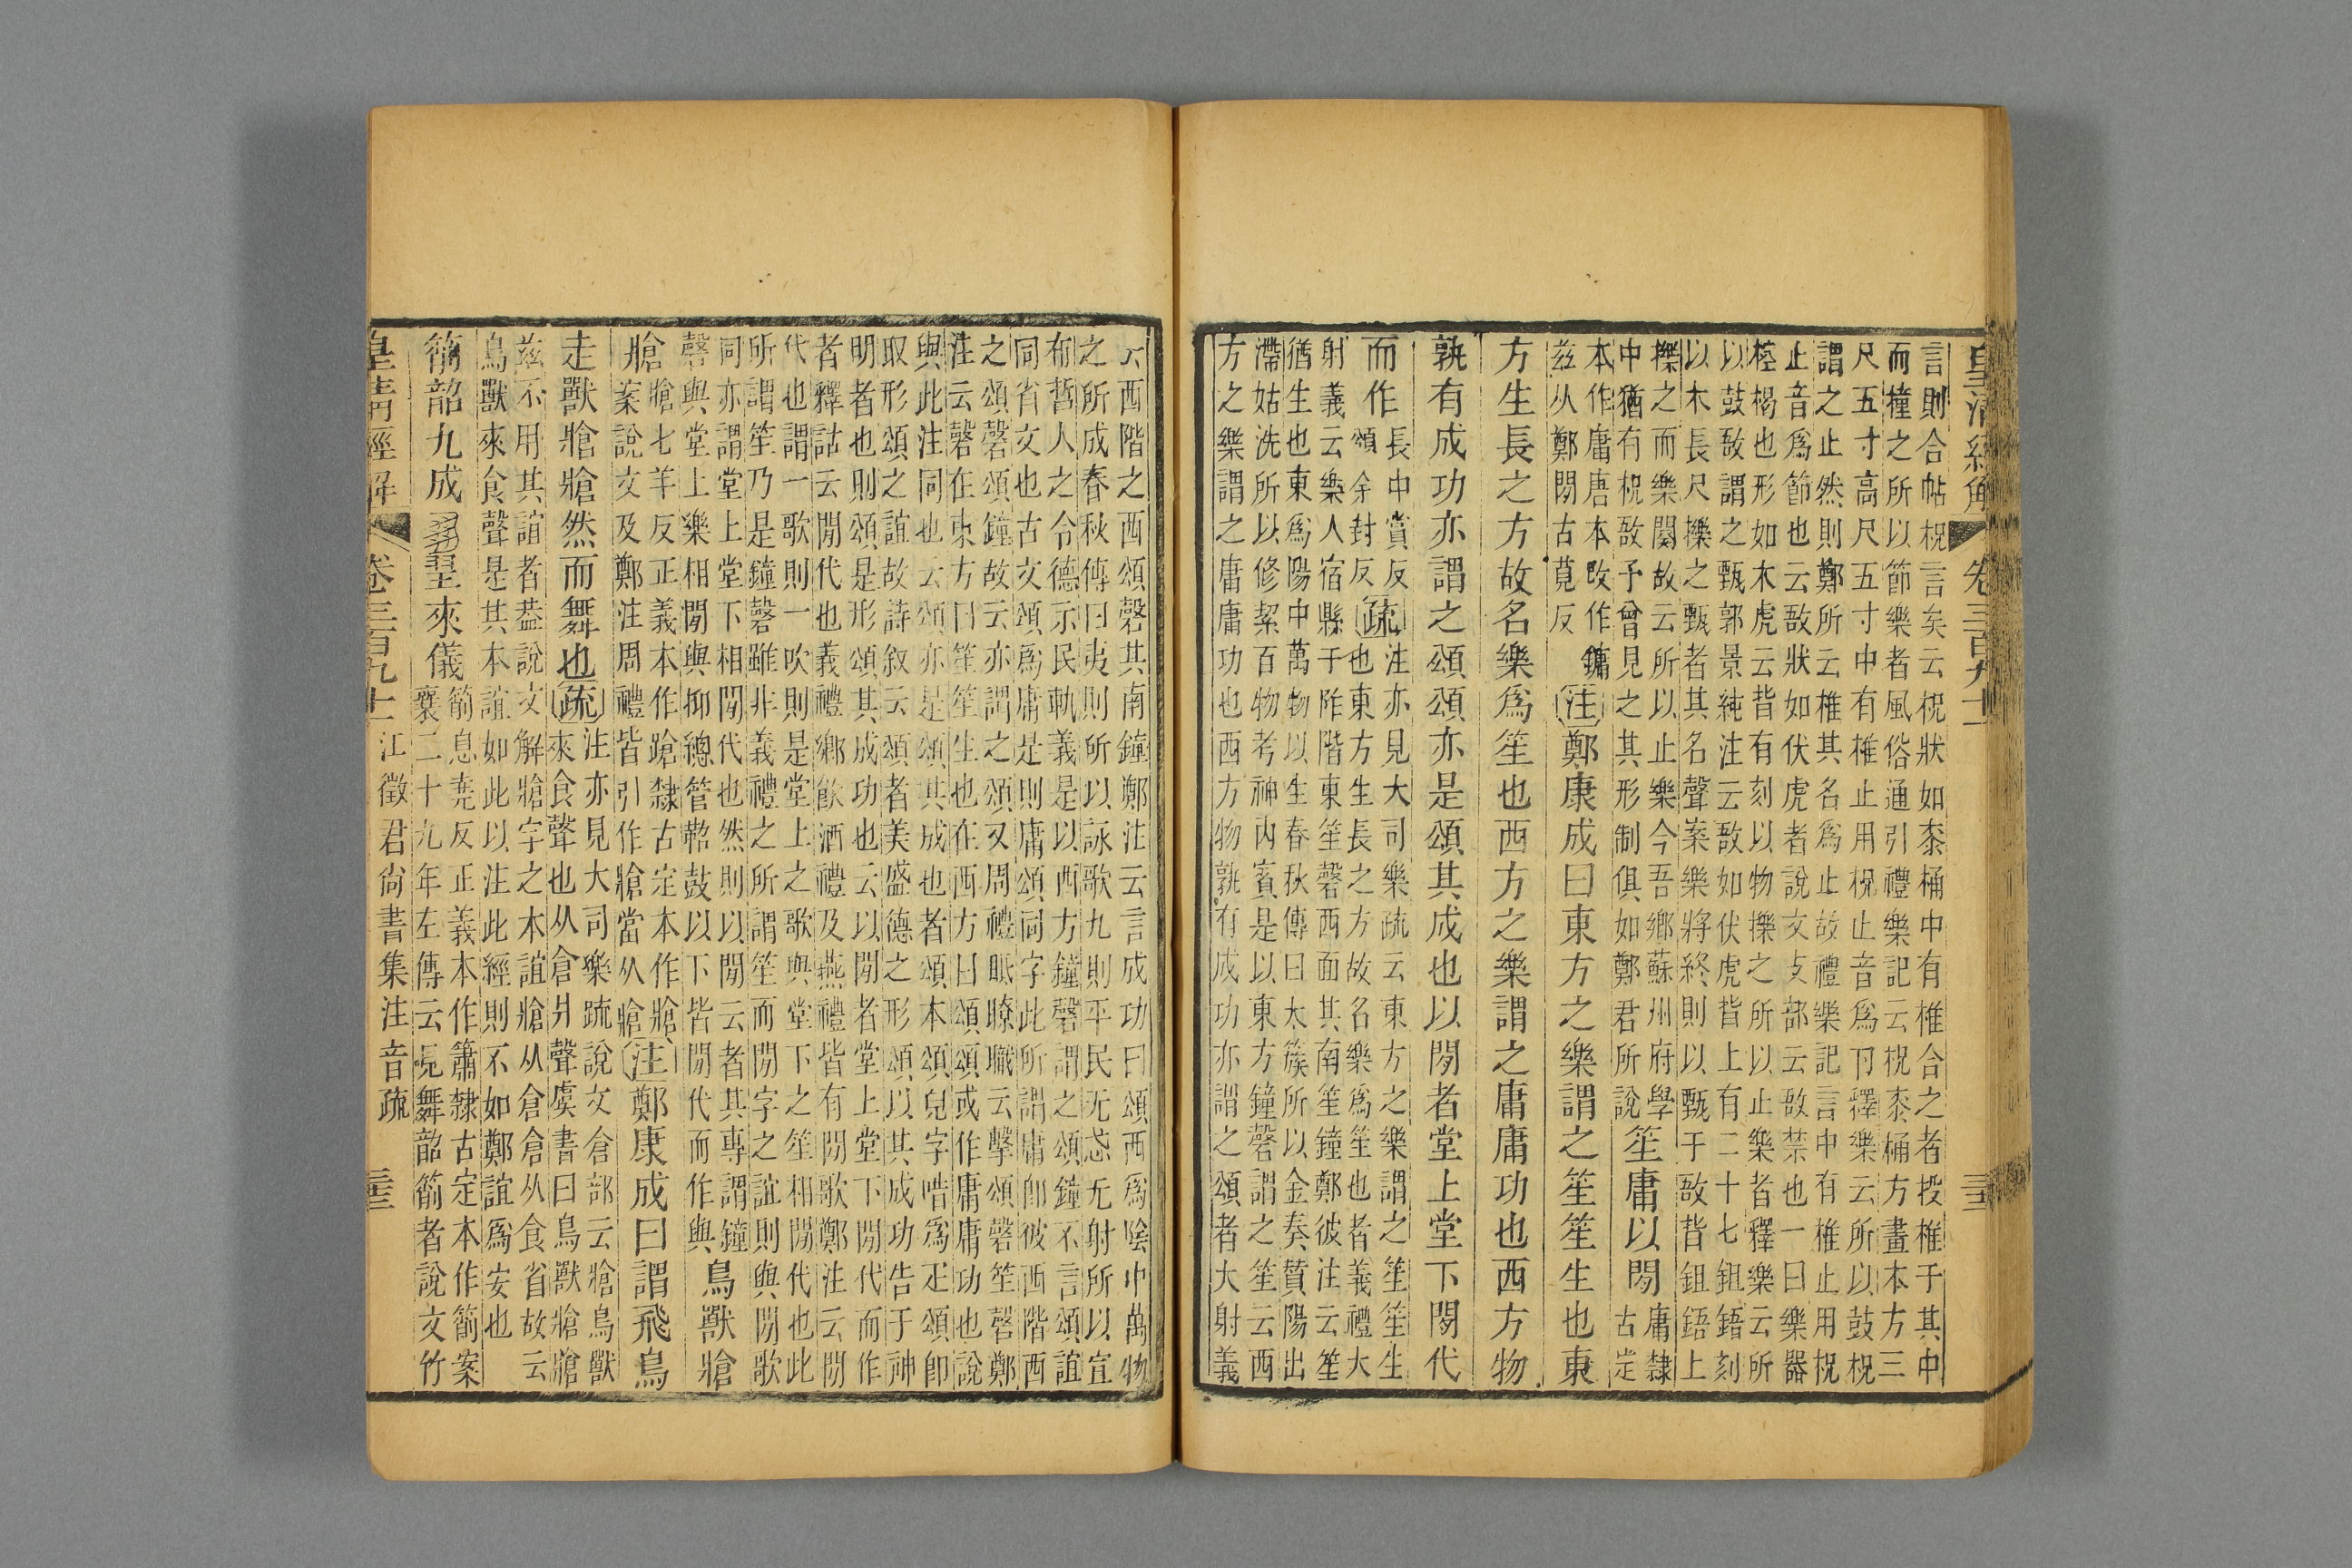 皇清經解 卷三百九十一 三三
言則合帖柷言矣云柷狀如桼桶中有椎合之者投椎于其中
而撞之所以節樂者風俗通引禮樂記云柷桼桶方畫本方三
尺五寸高尺五寸中有椎止用柷止音爲節釋樂云所以鼓柷
謂之止然則鄭所云椎其名爲止故禮樂記言中有椎止用柷
止音爲節也云敔狀如伏虎者說文攴部云敔禁也一曰樂器
椌楬也形如木虎云皆有刻以物擽之所以止樂者釋樂云所
以鼓敔謂之甄郭景純注云敔如伏虎背上有二十七鉏鋙刻
以木長尺擽之甄者其名聲案樂將終則以甄于敔背鉏鋙上
擽之而樂闋故云所以止樂今吾鄉蘇州府學
中猶有柷敔予曾見之其形制俱如鄭君所說
笙庸以閒
庸隸古定
本作庸唐本改作鏞
兹从鄭閒古莧反
注鄭康成曰東方之樂謂之笙笙生也東
方生長之方故名樂爲笙也西方之樂謂之庸庸功也西方物
孰有成功亦謂之頌頌亦是頌其成也以閒者堂上堂下閒代
而作
長中賞反
頌余封反
疏
注亦見大司樂疏云東方之樂謂之笙笙生
也東方生長之方故名樂爲笙也者義禮大
射義云樂人宿縣于阼階東笙磬西面其南笙鐘鄭彼注云笙
猶生也東爲陽中萬物以生春秋傳曰太蔟所以金奏贊陽出
滯姑洗所以修絜百物考神內賓是以東方鐘磬謂之笙云西
方之樂謂之庸庸功也西方物孰有成功亦謂之頌者大射義
云西階之西頌磬其南鐘鄭注云言成功曰頌西爲陰中萬物
之所成春秋傳曰夷則所以詠歌九則平民无忒无射所以宣
布哲人之令德示民軌義是以西方鐘磬謂之頌鐘不言頌誼
同省文也古文頌爲庸是則庸頌同字此所謂庸卽彼西階西
之頌磬頌鐘故云亦謂之頌又周禮眡瞭職云擊頌磬笙磬鄭
注云磬在東方曰笙笙生也在西方曰頌頌或作庸庸功也說
與此注同也云頌亦是頌其成也者頌本頌皃字哠爲疋頌卽
取形頌之誼故詩敘云頌者美盛德之形頌以其成功告于神
明者也則頌是形頌其成功也云以閒者堂上堂下閒代而作
者釋詁云閒代也義禮鄉飮酒禮及燕禮皆有閒歌鄭注云閒
代也謂一歌則一吹則是堂上之歌與堂下之笙相閒代也此
所謂笙乃是鐘磬雖非義禮之所謂笙而閒字之誼則與閒歌
同亦謂堂上堂下相閒代也然則以閒云者其專謂鐘
磬與堂上樂相閒與抑總管鞉鼓以下皆閒代而作與
鳥獸牄
牄
牄七羊反正義本作蹌隸古定本作牄
案說文及鄭注周禮皆引作牄當从牄
注鄭康成曰謂飛鳥
走獸牄牄然而舞也疏
注亦見大司樂疏說文倉部云牄鳥獸
來食聲也从倉爿聲虞書曰鳥獸牄牄
兹不用其誼者葢說文解牄字之本誼牄从倉倉从食省故云
鳥獸來食聲是其本誼如此以注此經則不如鄭誼爲安也
箾韶九成
皇來儀
箾息堯反正義本作簫隸古定本作箾案
襄二十九年左傳云見舞韶箾者說文竹
皇清經解 卷三百九十一 江徵君尙書集注音疏 三三